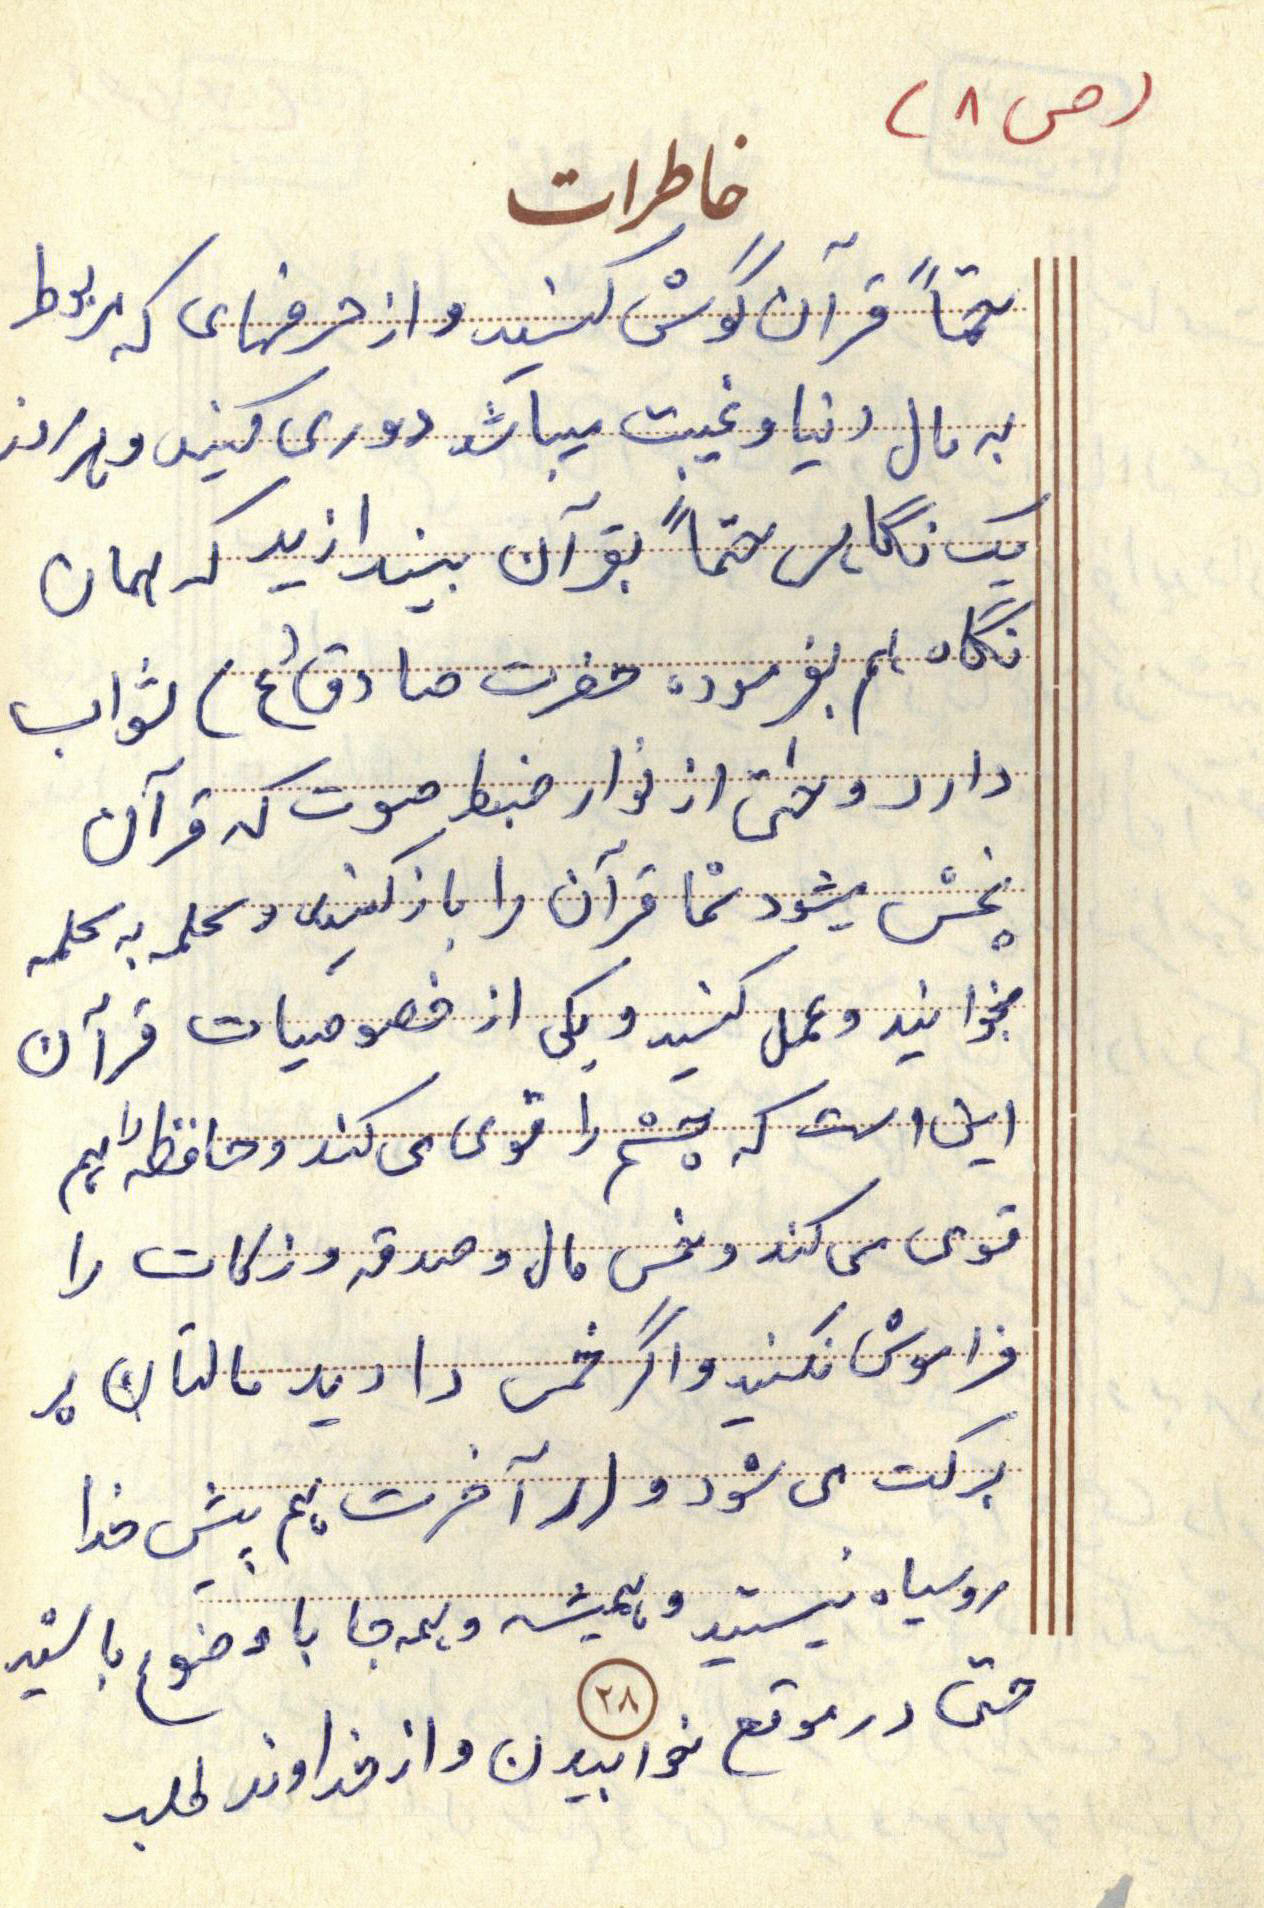 (ص ۸)
خاطرات
حتماً قرآن گوش کنید و از حرفهای که مربوط
به مال دنیا و غیبت میباشد دوری کنید و هر روز
یک نگاهی حتماً بقرآن بیندازید که همان
نگاه هم بفرموده حضرت صادق (ع) ثواب
دارد و حتی از نوار ضبط صوت که قرآن
پخش میشود شما قرآن را باز کنید و کلمه به کلمه
بخوانید و عمل کنید و یکی از خصوصیات قرآن
این است که چشم را قوی می کند و حافظه را هم
قوی می کند و خمس مال و صدقه و زکات را
فراموش نکنید و اگر خمس دادید مالتان پر
برکت می شود و در آخرت هم پیش خدا
روسیاه نیستید و همیشه و همه جا با وضوع باشید
حتی در موقع خوابیدن و از خداوند طلب
۲۸